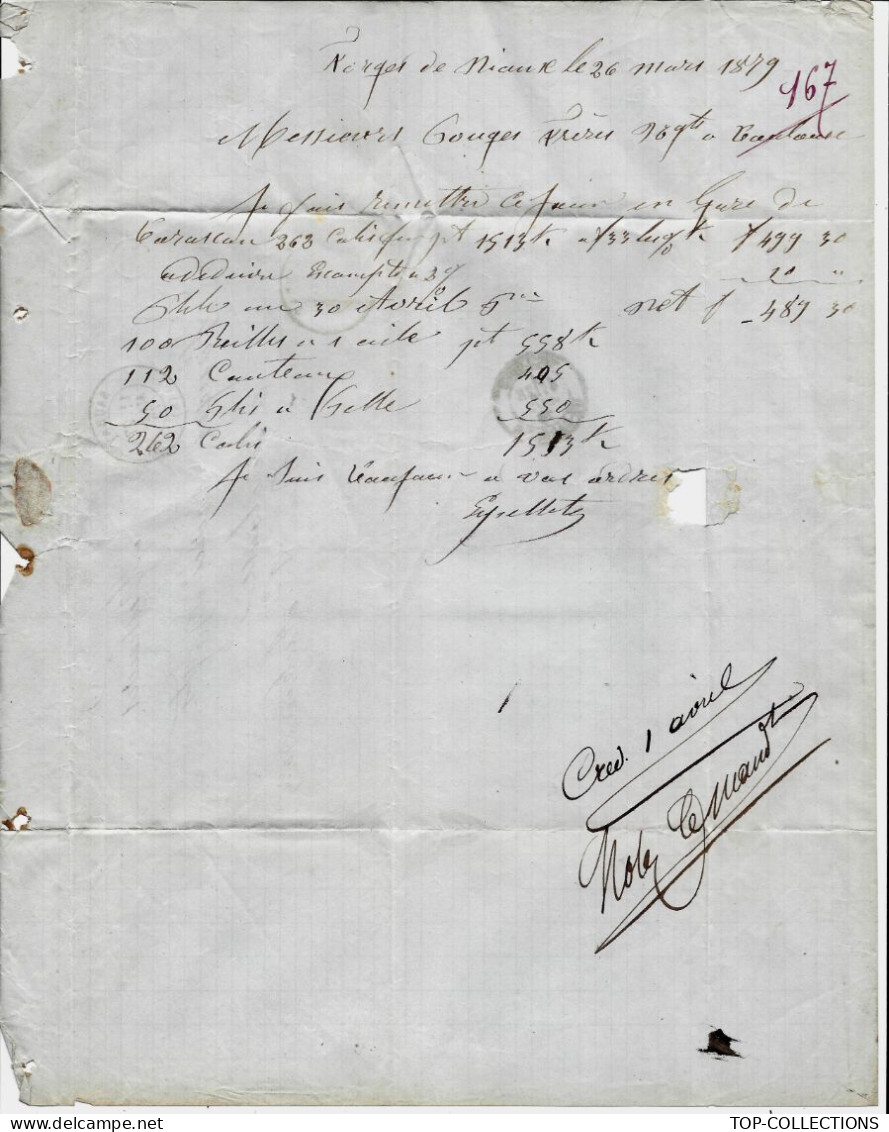 Forges de Niaux le 26 mars 1879
167
Messieurs Pouges Frères Negts a Toulouse
Je fais remettre ce jour en Gare de
Tarascon 262 Colis fer pt 1513k a f 33 les %k f 499 30
a déduire Escompte 2%
Pble au 30 Avril net f 489 30
100 Reilles a 1 aile pt 558k
112 Couteaux 405
50 a 550
262 Colis 1513k
Je suis toujours a vos ordres
Cred. 1 avril
Note Le Mandt
TOP-COLLECTIONS